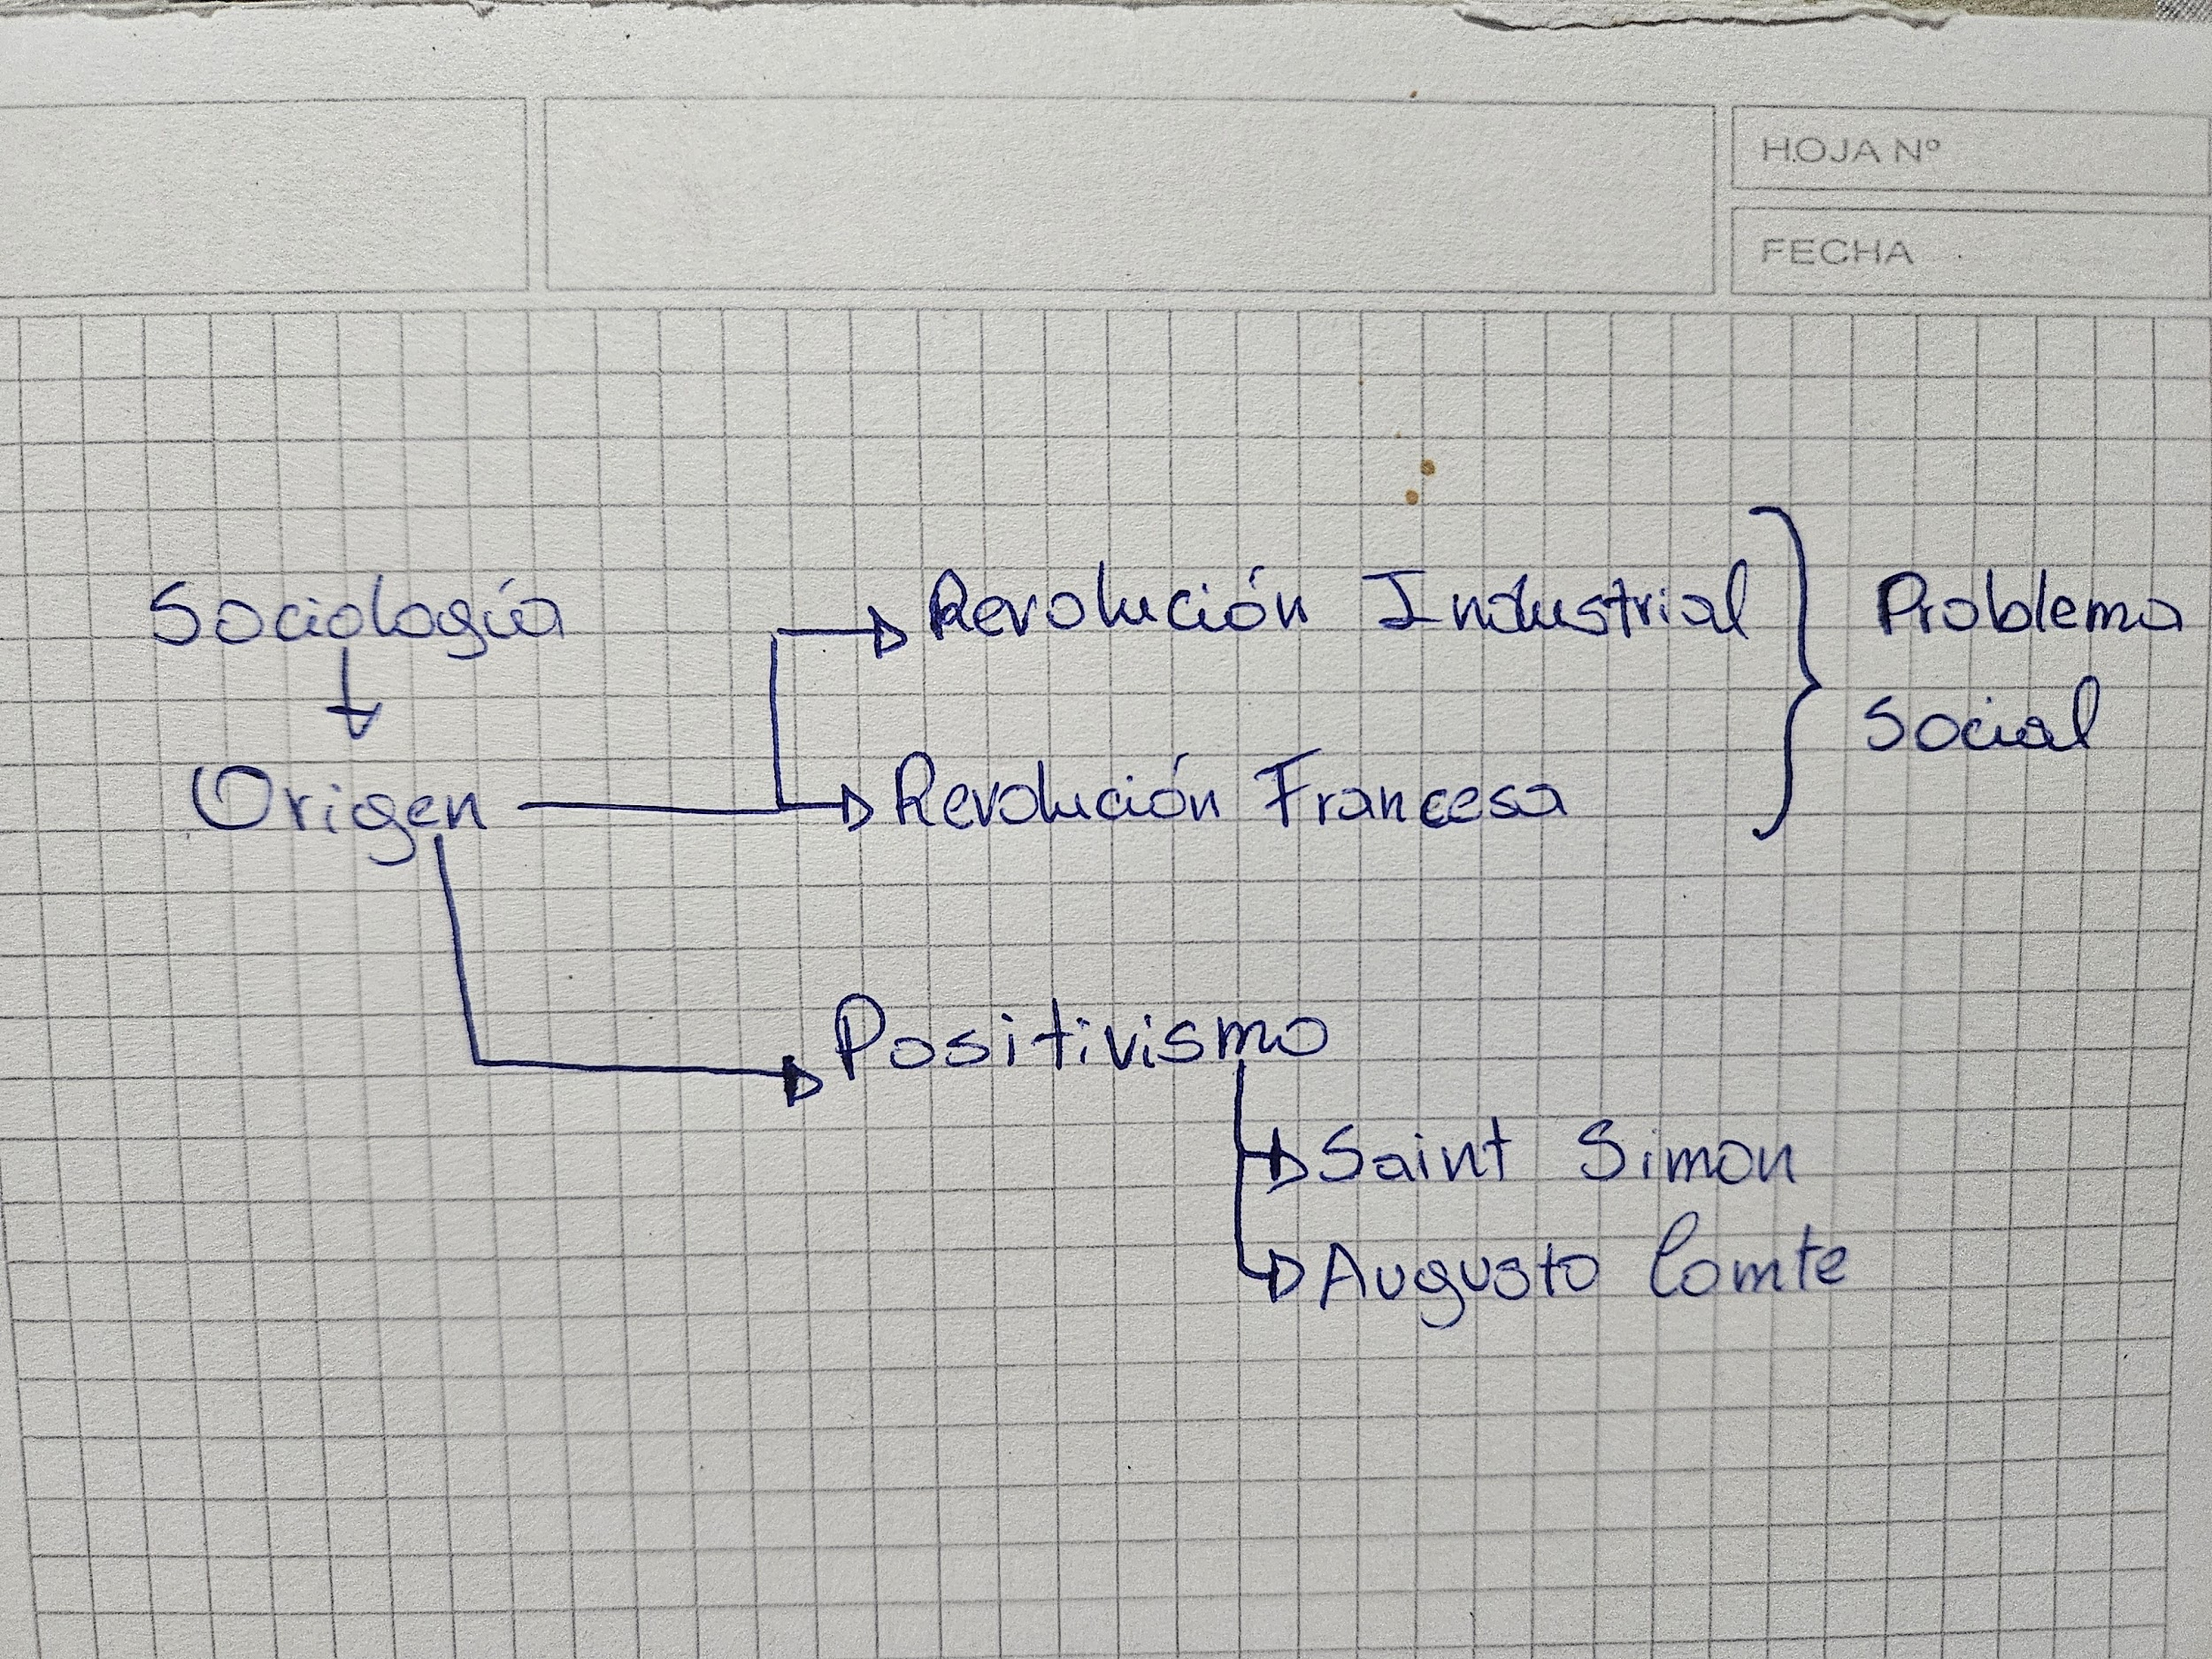 HOJA Nº
FECHA
Sociología
Origen
Revolución Industrial
Revolución Francesa
Problema
Social
Positivismo
Saint Simon
Augusto Comte